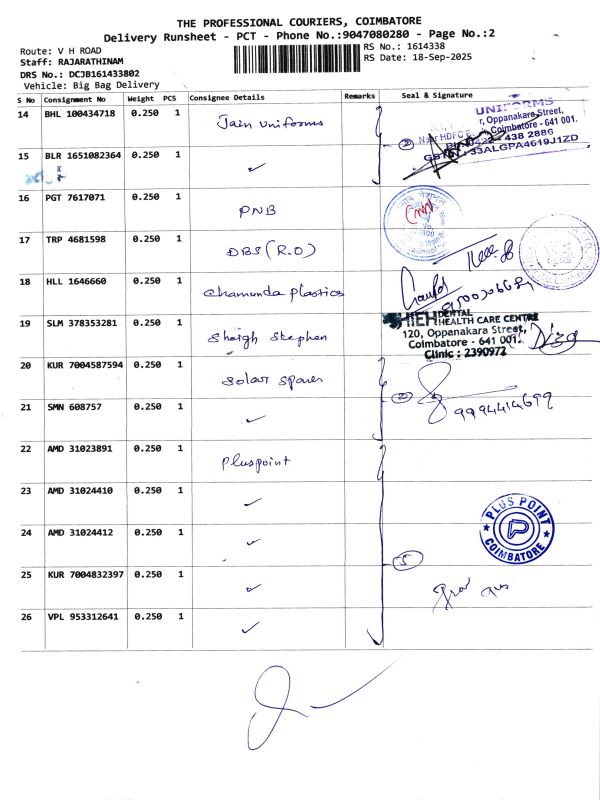 THE PROFESSIONAL COURIERS, COIMBATORE
Delivery Runsheet - PCT - Phone No.:9047080280 - Page No.:2
Route: V H ROAD
RS No.: 1614338
Staff: RAJARATHINAM
RS Date: 18-Sep-2025
DRS No.: DCJB161433802
Vehicle: Big Bag Delivery
S No Consignment No Weight PCS Consignee Details Remarks Seal & Signature
14 BHL 100434718 0.250 1 Jain Uniforms
UNIFORMS
r, Oppanakara Street,
Coimbatore - 641 001.
438 2886
33ALGPA4619J1ZD
15 BLR 1651082364 0.250 1 ✓ 2
16 PGT 7617071 0.250 1 PNB
17 TRP 4681598 0.250 1 DBS (R.O)
18 HLL 1646660 0.250 1 Chamunda plastics
19 SLM 378353281 0.250 1 Shaigh Stephen
DENTAL
HEALTH CARE CENTRE
120, Oppanakara Street,
Coimbatore - 641 001.
Clinic : 2390972
20 KUR 7004587594 0.250 1 Solar spares
21 SMN 608757 0.250 1 ✓ 2 9994414699
22 AMD 31023891 0.250 1 Pluspoint
23 AMD 31024410 0.250 1 ✓
PLUS POINT
COIMBATORE
24 AMD 31024412 0.250 1 ✓ 5
25 KUR 7004832397 0.250 1 ✓
26 VPL 953312641 0.250 1 ✓